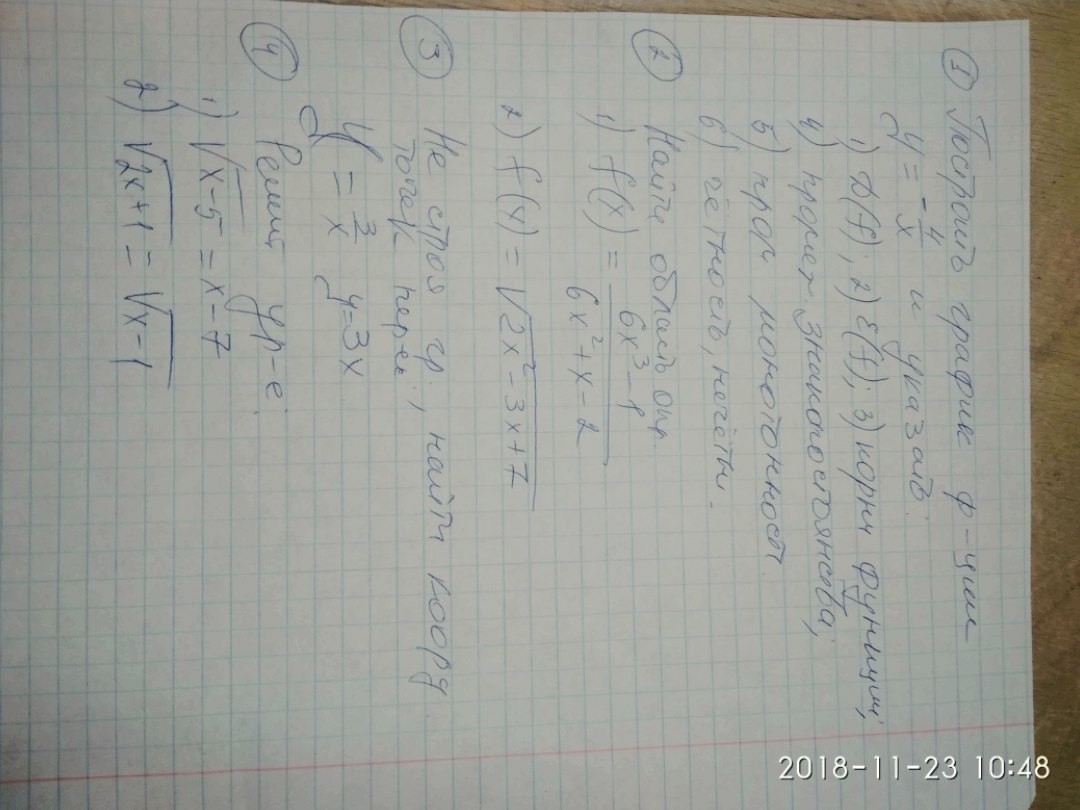 ① Построить график ф-ции
y = -4/x и указать:
1) D(f); 2) E(f); 3) корни функции;
4) промеж. знакопостоянства;
5) пром монотонност.
6) четность, нечетн.
② Найти область опр.
1) f(x) = (6x³-1)/(6x²+x-2)
2) f(x) = √(2x²-3x+7)
③ Не строя гр., найти коорд.
точек перес.
y = 3/x y=3x
④ Решит ур-е:
1) √(x-5) = x-7
2) √(2x+1) = √(x-1)
2018-11-23 10:48